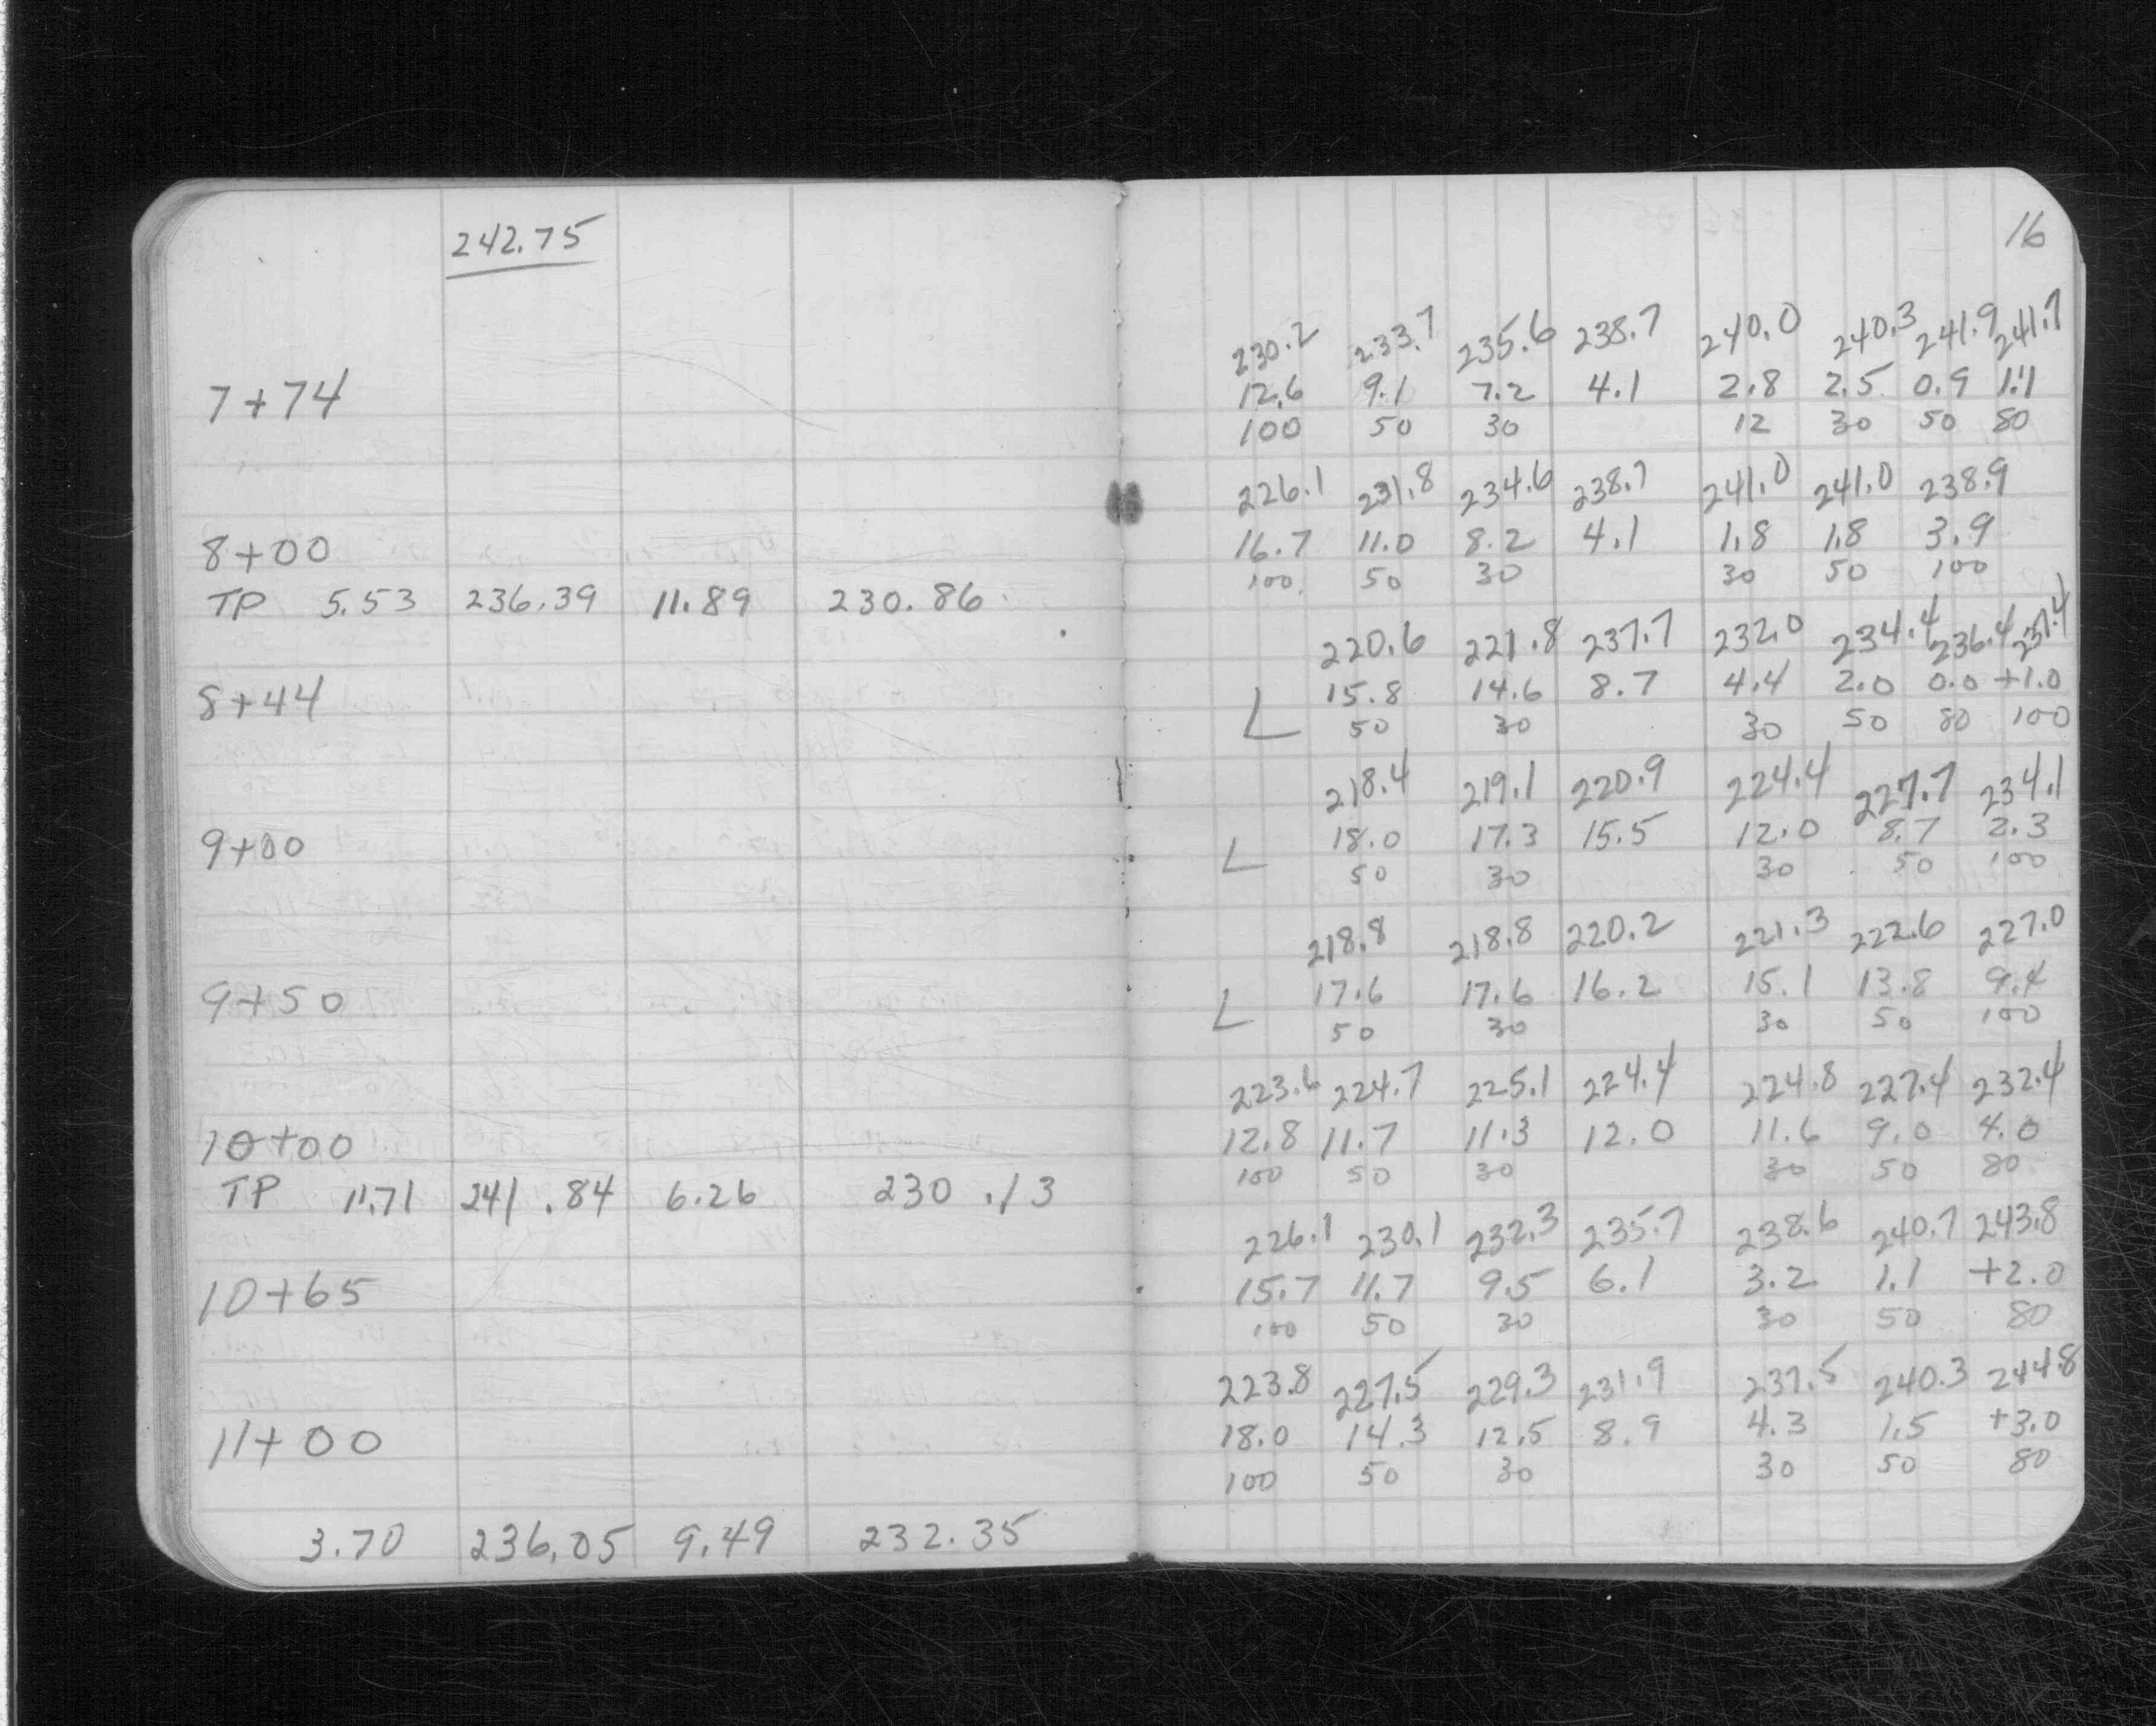 242.75
7+74
8+00
TP 5.53 236.39 11.89 230.86
8+44
9+00
9+50
10+00
TP 11.71 241.84 6.26 230.13
10+65
11+00
3.70 236.05 9.49 232.35
16
230.2 233.7 235.6 238.7 240.0 240.3 241.9 241.7
12.6 9.1 7.2 4.1 2.8 2.5 0.9 1.1
100 50 30 12 30 50 80
226.1 231.8 234.6 238.7 241.0 241.0 238.9
16.7 11.0 8.2 4.1 1.8 1.8 3.9
100 50 30 30 50 100
220.6 221.8 237.7 232.0 234.4 236.4 237.4
L 15.8 14.6 8.7 4.4 2.0 0.0 +1.0
50 30 30 50 80 100
218.4 219.1 220.9 224.4 227.7 234.1
L 18.0 17.3 15.5 12.0 8.7 2.3
50 30 30 50 100
218.8 218.8 220.2 221.3 222.6 227.0
L 17.6 17.6 16.2 15.1 13.8 9.4
50 30 30 50 100
223.6 224.7 225.1 224.4 224.8 227.4 232.4
12.8 11.7 11.3 12.0 11.6 9.0 4.0
100 50 30 30 50 80
226.1 230.1 232.3 235.7 238.6 240.7 243.8
15.7 11.7 9.5 6.1 3.2 1.1 +2.0
100 50 30 30 50 80
223.8 227.5 229.3 231.9 237.5 240.3 244.8
18.0 14.3 12.5 8.9 4.3 1.5 +3.0
100 50 30 30 50 80